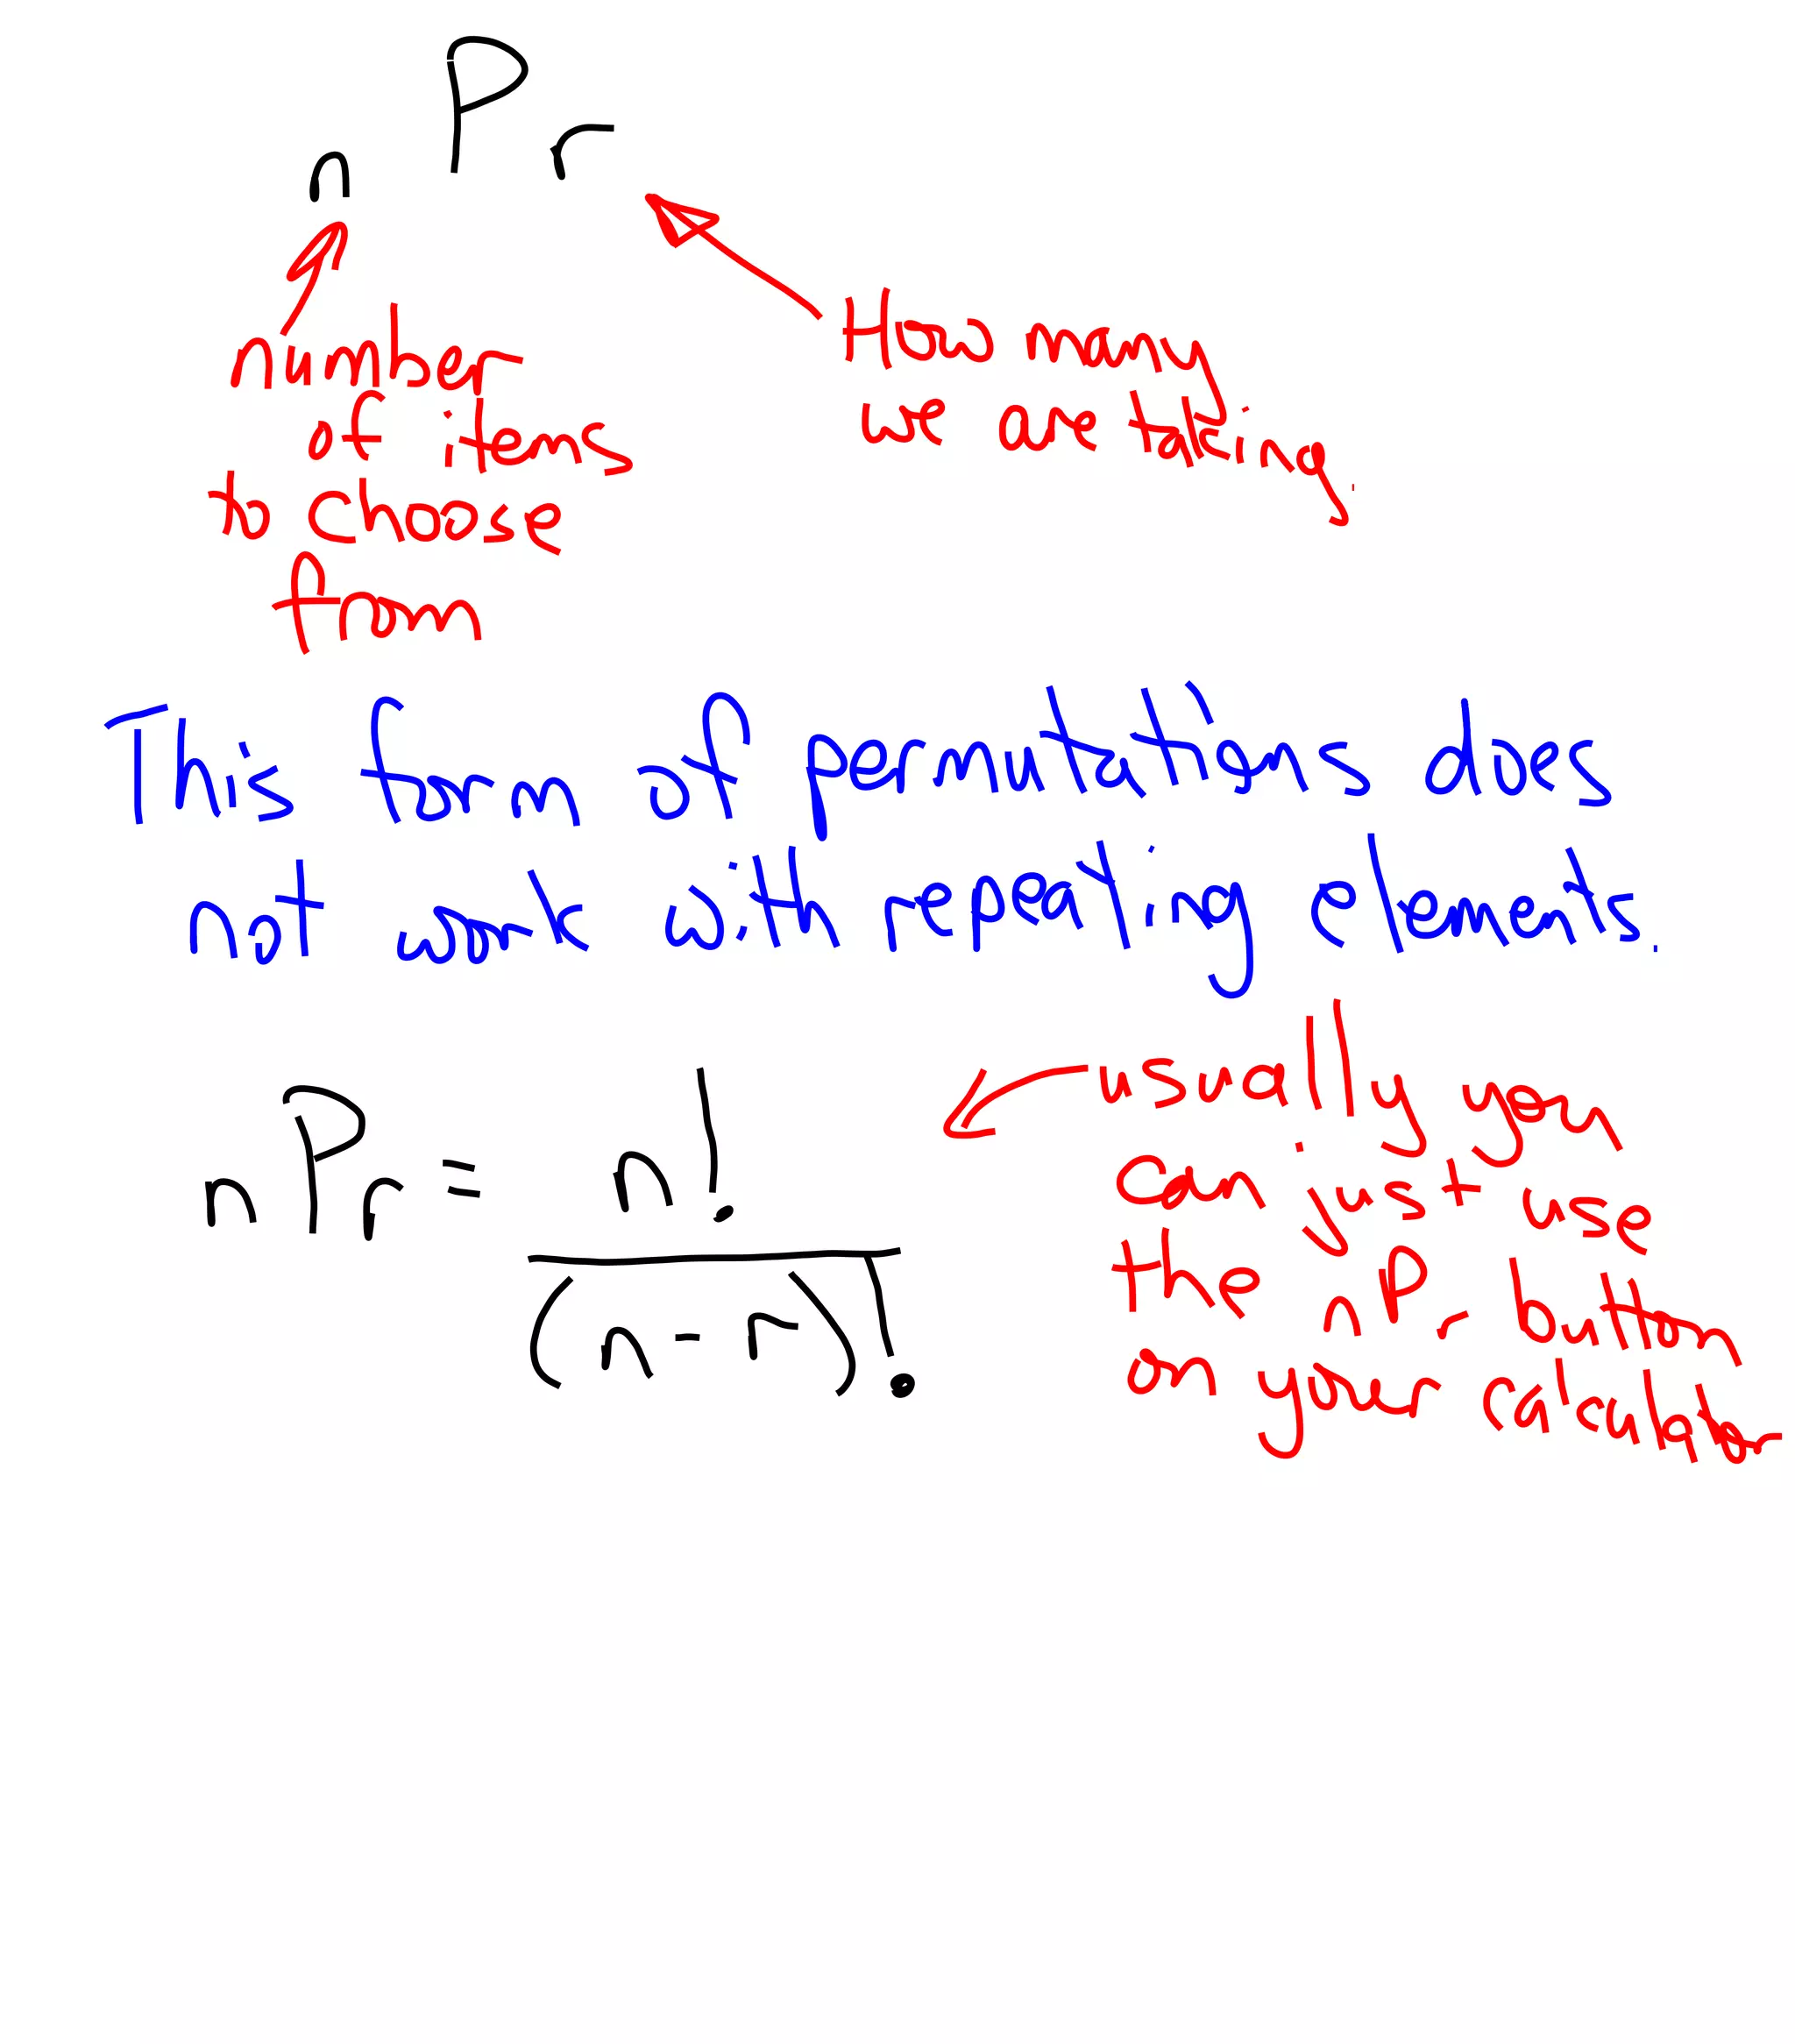 nPr
number
of items
to choose
from
How many
we are taking.
This form of permutations does
not work with repeating elements.
nPr = n!
(n-r)!
usually you
can just use
the nPr button
on your calculator